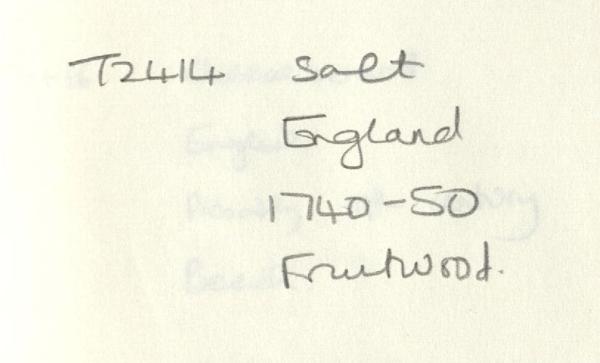 T2414 Salt
England
1740-50
Fruitwood.